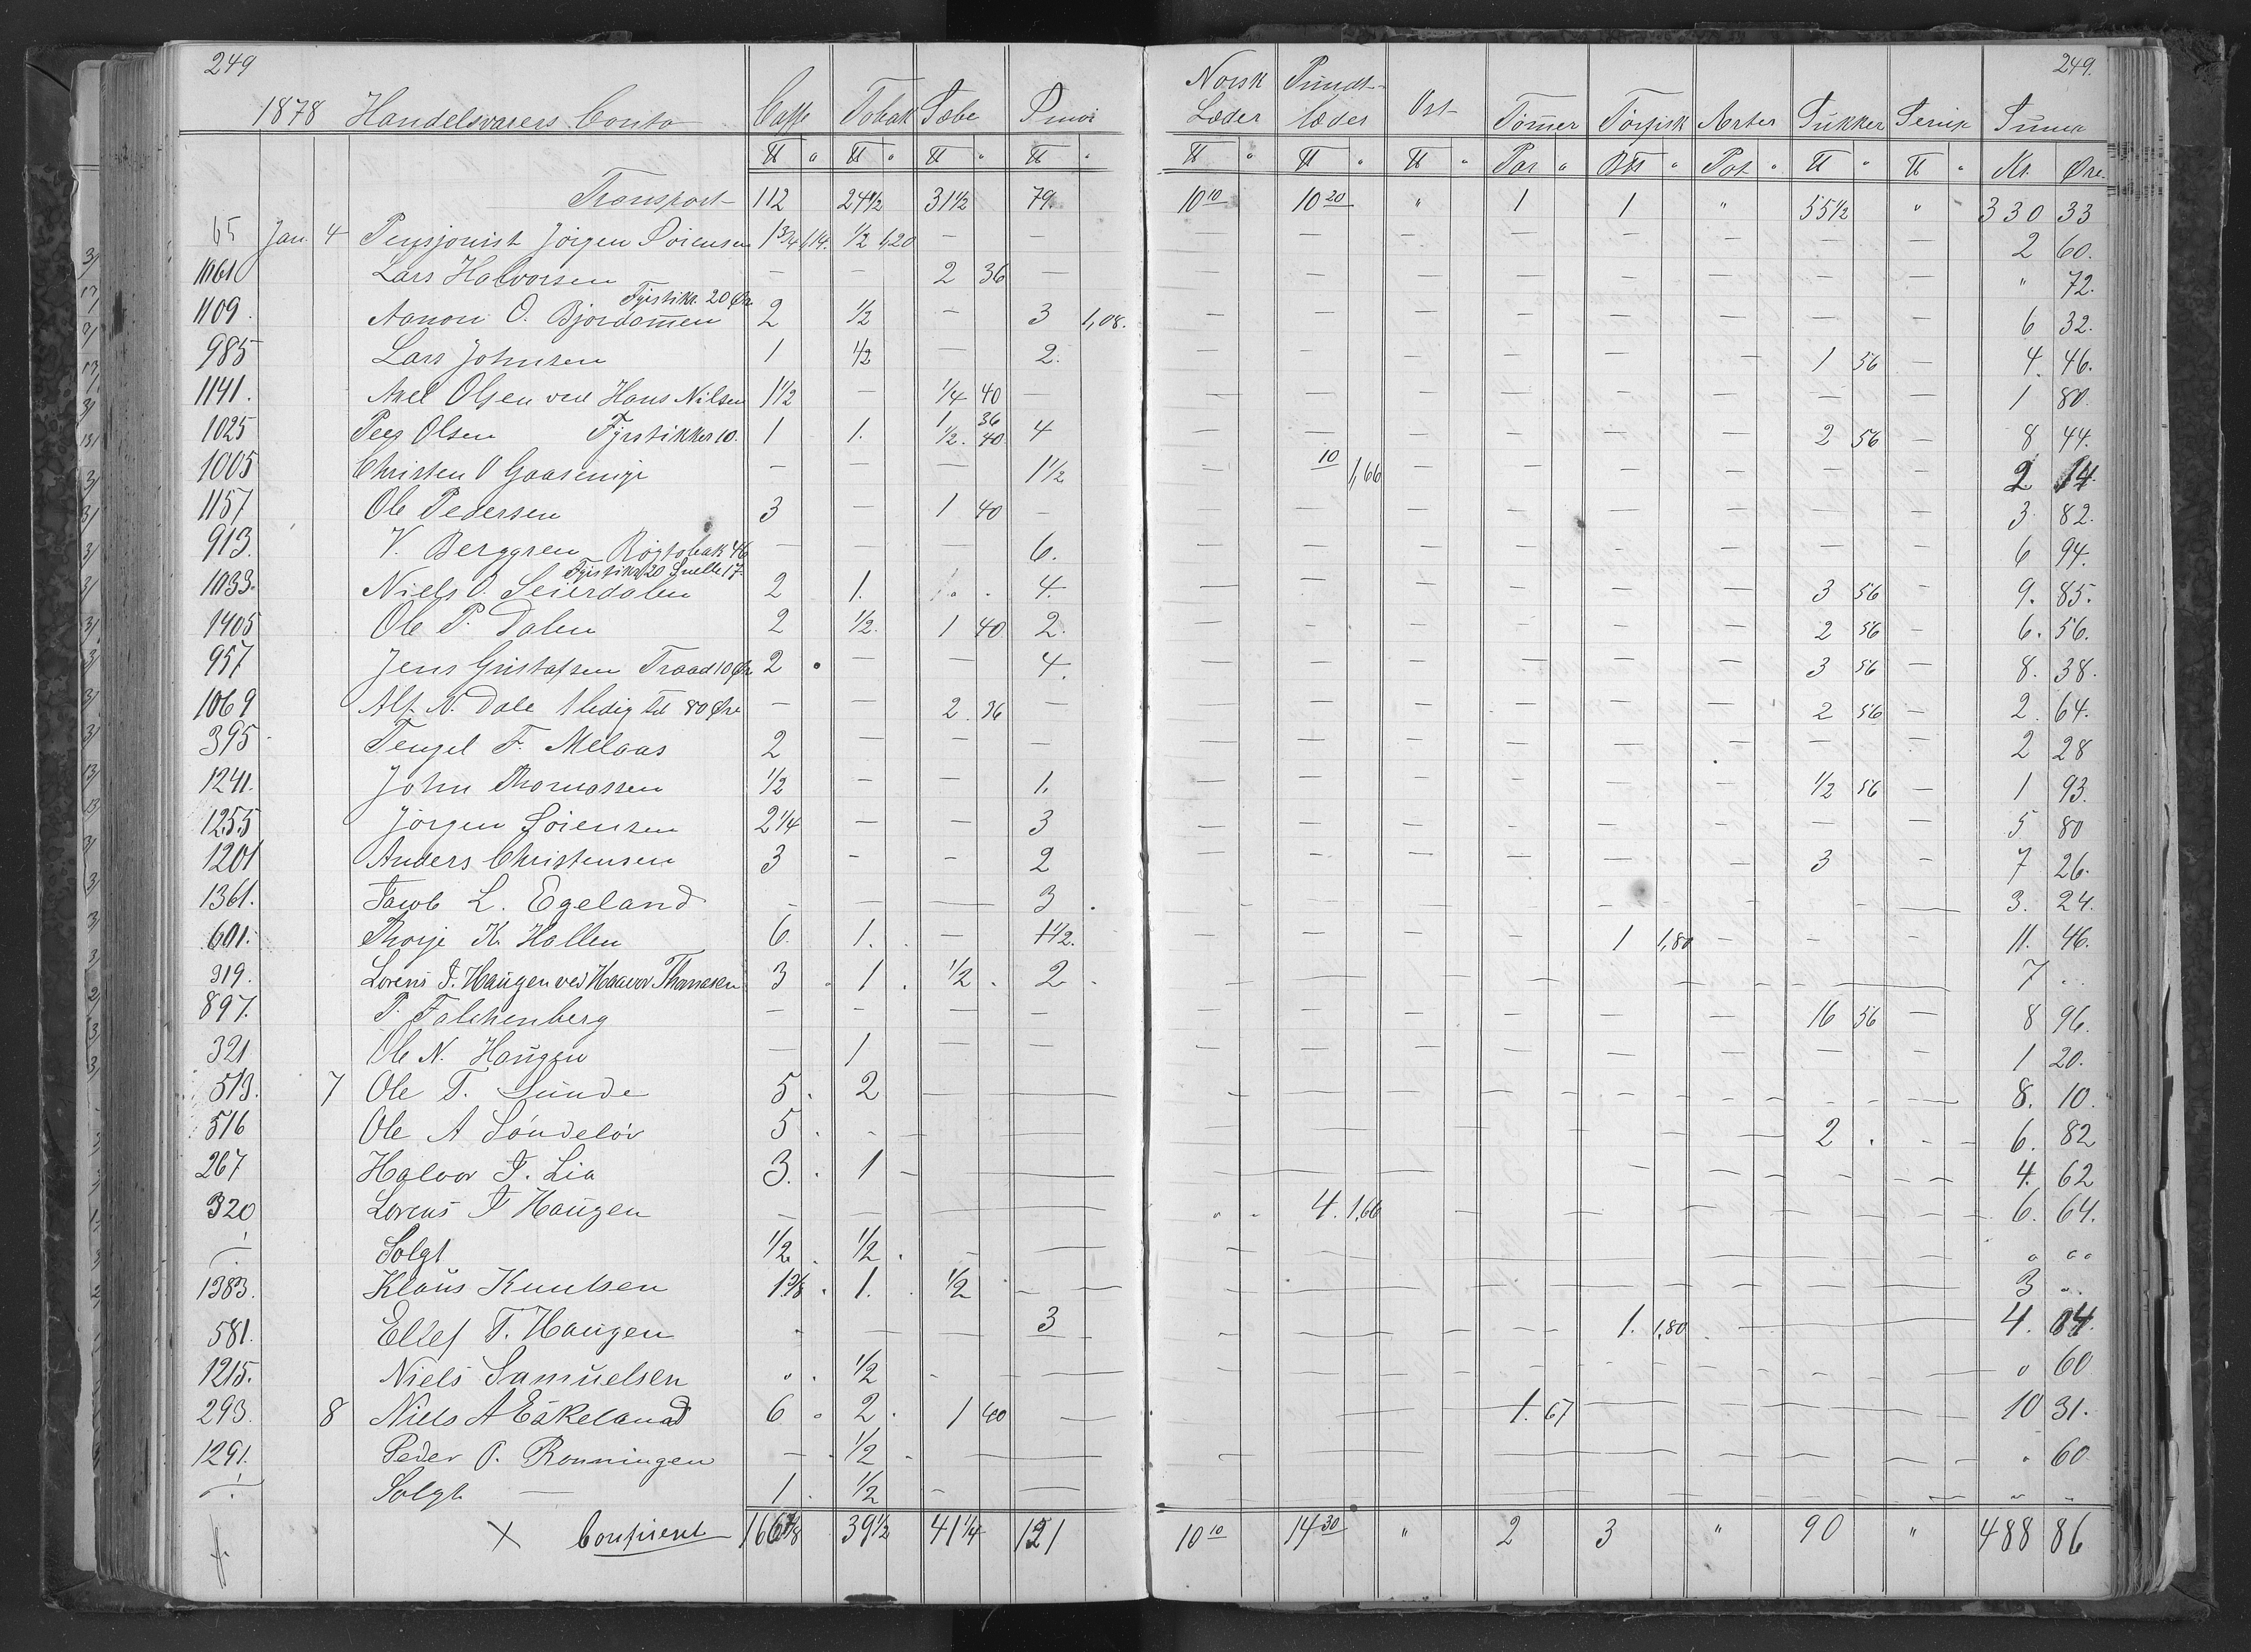 249 249.
1878 Handelsvarers Conto Caffe Tobak Sæbe Smør Norsk Læder Pundt-læder Ost Tømmer TørfiskÆrter Sukker Serup Summa
℔ " ℔ " ℔ " ℔ " ℔ " ℔ " ℔ " Par " B℔ " Pot " ℔ " ℔ " Kr. Øre.
Transport 112 24½ 31½ 79. 10 10 10 20 " 1 1 " 55½ " 330 33
65 Jan. 4 Pensjonist Jörgen Sörensen 1¾ 1,14. ½ 1,20 — — — — — — — — — — 2 60.
1161 Lars Halvorsen — — 2 36 — — — — — — — — — " 72.
Fyrstikr. 20 Øre
1109. Aanon O. Bjordammen 2 ½ — 3 1,08. — — — — — — — — 6 32.
985 Lars Johnsen 1 ½ — 2. — — — — — — 1 56 4. 46.
1141. Axel Olsen ved Hans Nilsen 1½ — ¼ 40 — — — — — — — — — 1 80.
1025 Peer Olsen Fyrstikker 10. 1 1. 1 36 ½. 40 4 — — — — — — 2 56 — 8 44.
1005 Christen O Gaaseninge — — — 1½ — 10 1,66 — — — — — — 2. 14.
1157 Ole Pedersen 3 — 1 40 — — — — — — — — — 3. 82.
913. V. Berggren Røgtobak 46 — — — 6. — — — — — — — — 6 94.
Fyrstikr. 20 Snelle 17.
1033. Niels O. Seierdalen 2 1. 4. — — — — — — 3 56 — 9. 85.
1405 Ole P. Dalen 2 ½. 1 40 2. — — — — — — 2 56 — 6. 56.
957 Jens Gustafsen Traad 10 Øre 2 — — 4. — — — — — — 3 56 — 8. 38.
1069 Alf. N. Dale 1 ledig til 80 Øre — — 2. 36 — — — — — — — 2 56 — 2. 64.
395 Tengel F. Melaas 2 — — — — — — — — — — — 2 28
1241. John Thomassen ½ — — 1. — — — — — — ½ 56 — 1 93.
1255 Jörgen Sörensen 2¼ — — 3 — — — — — — — — 5 80
1201 Anders Christensen 3 - - 2 — — — — — — 3 — 7 26.
1361. Jacob L. Egeland - — — 3. — — — — — — — — 3. 24.
601. Thorje K. Hallen 6. 1. — 1½. — — — — 1 1,80 — - - 11. 46.
319. Lorens T. Haugen ved Haavor Thomesen 3 1 ½ 2 — — — — — — — — 7 ..
897. P. Falchenberg — - — — — — — — — — 16 56 — 8 96.
321 Ole N. Haugen — 1 — — — — — — — — — — 1 20.
513. 7 Ole T. Sunde 5. 2 — — — — — — — — - — 8. 10.
516 Ole A Söndelöv 5. - — — — — — — — — 2. - 6. 82
267 Halvor T. Lia 3. 1 - — — — — — — — — — 4. 62
320 Lorens T Haugen — — — — " 4. 1,66 — — — — — — 6. 64.
" Solgt ½ ½ - — — — — — — — — — " ""
1383. Klaus Knutsen 1⅜ 1. ½ - — — — — — — — — 3 ..
581. Ellef T. Haugen - — — 3 — — — — 1. 1,80 — — 4. 04.
1215. Niels Samuelsen " ½ - — — — — — — — — — " 60
293. 8 Niels A Eskeland 6 2 1 40 — — — — 1. 67 — — — — 10 31.
1291. Peder O. Rönningen — ½ — — — — — — — — — — " 60
" Solgt — 1 ½ - — — — — — — — — — " "
× Confieret 166⅞ 39½ 41¼ 121 10 10 14 30 " 2 3 " 90 " 488 86